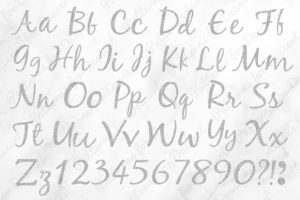 Aa Bb Cc Dd Ee Ff
Gg Hh Ii Jj Kk Ll Mm
Nn Oo Pp Qq Rr Ss
Tt Uu Vv Ww Yy Xx
Zz1234567890?!: